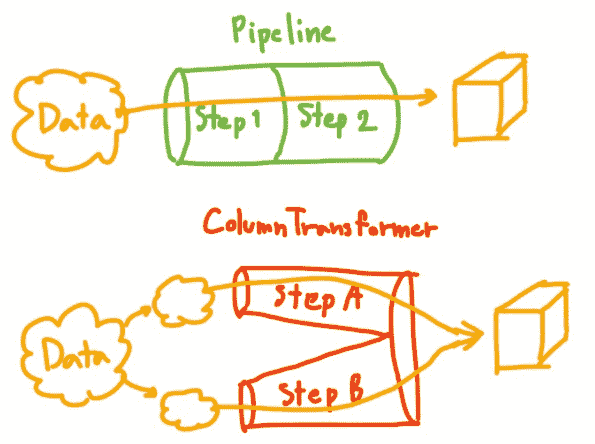 Pipeline
Data
Step 1
Step 2
ColumnTransformer
Step A
Data
Step B